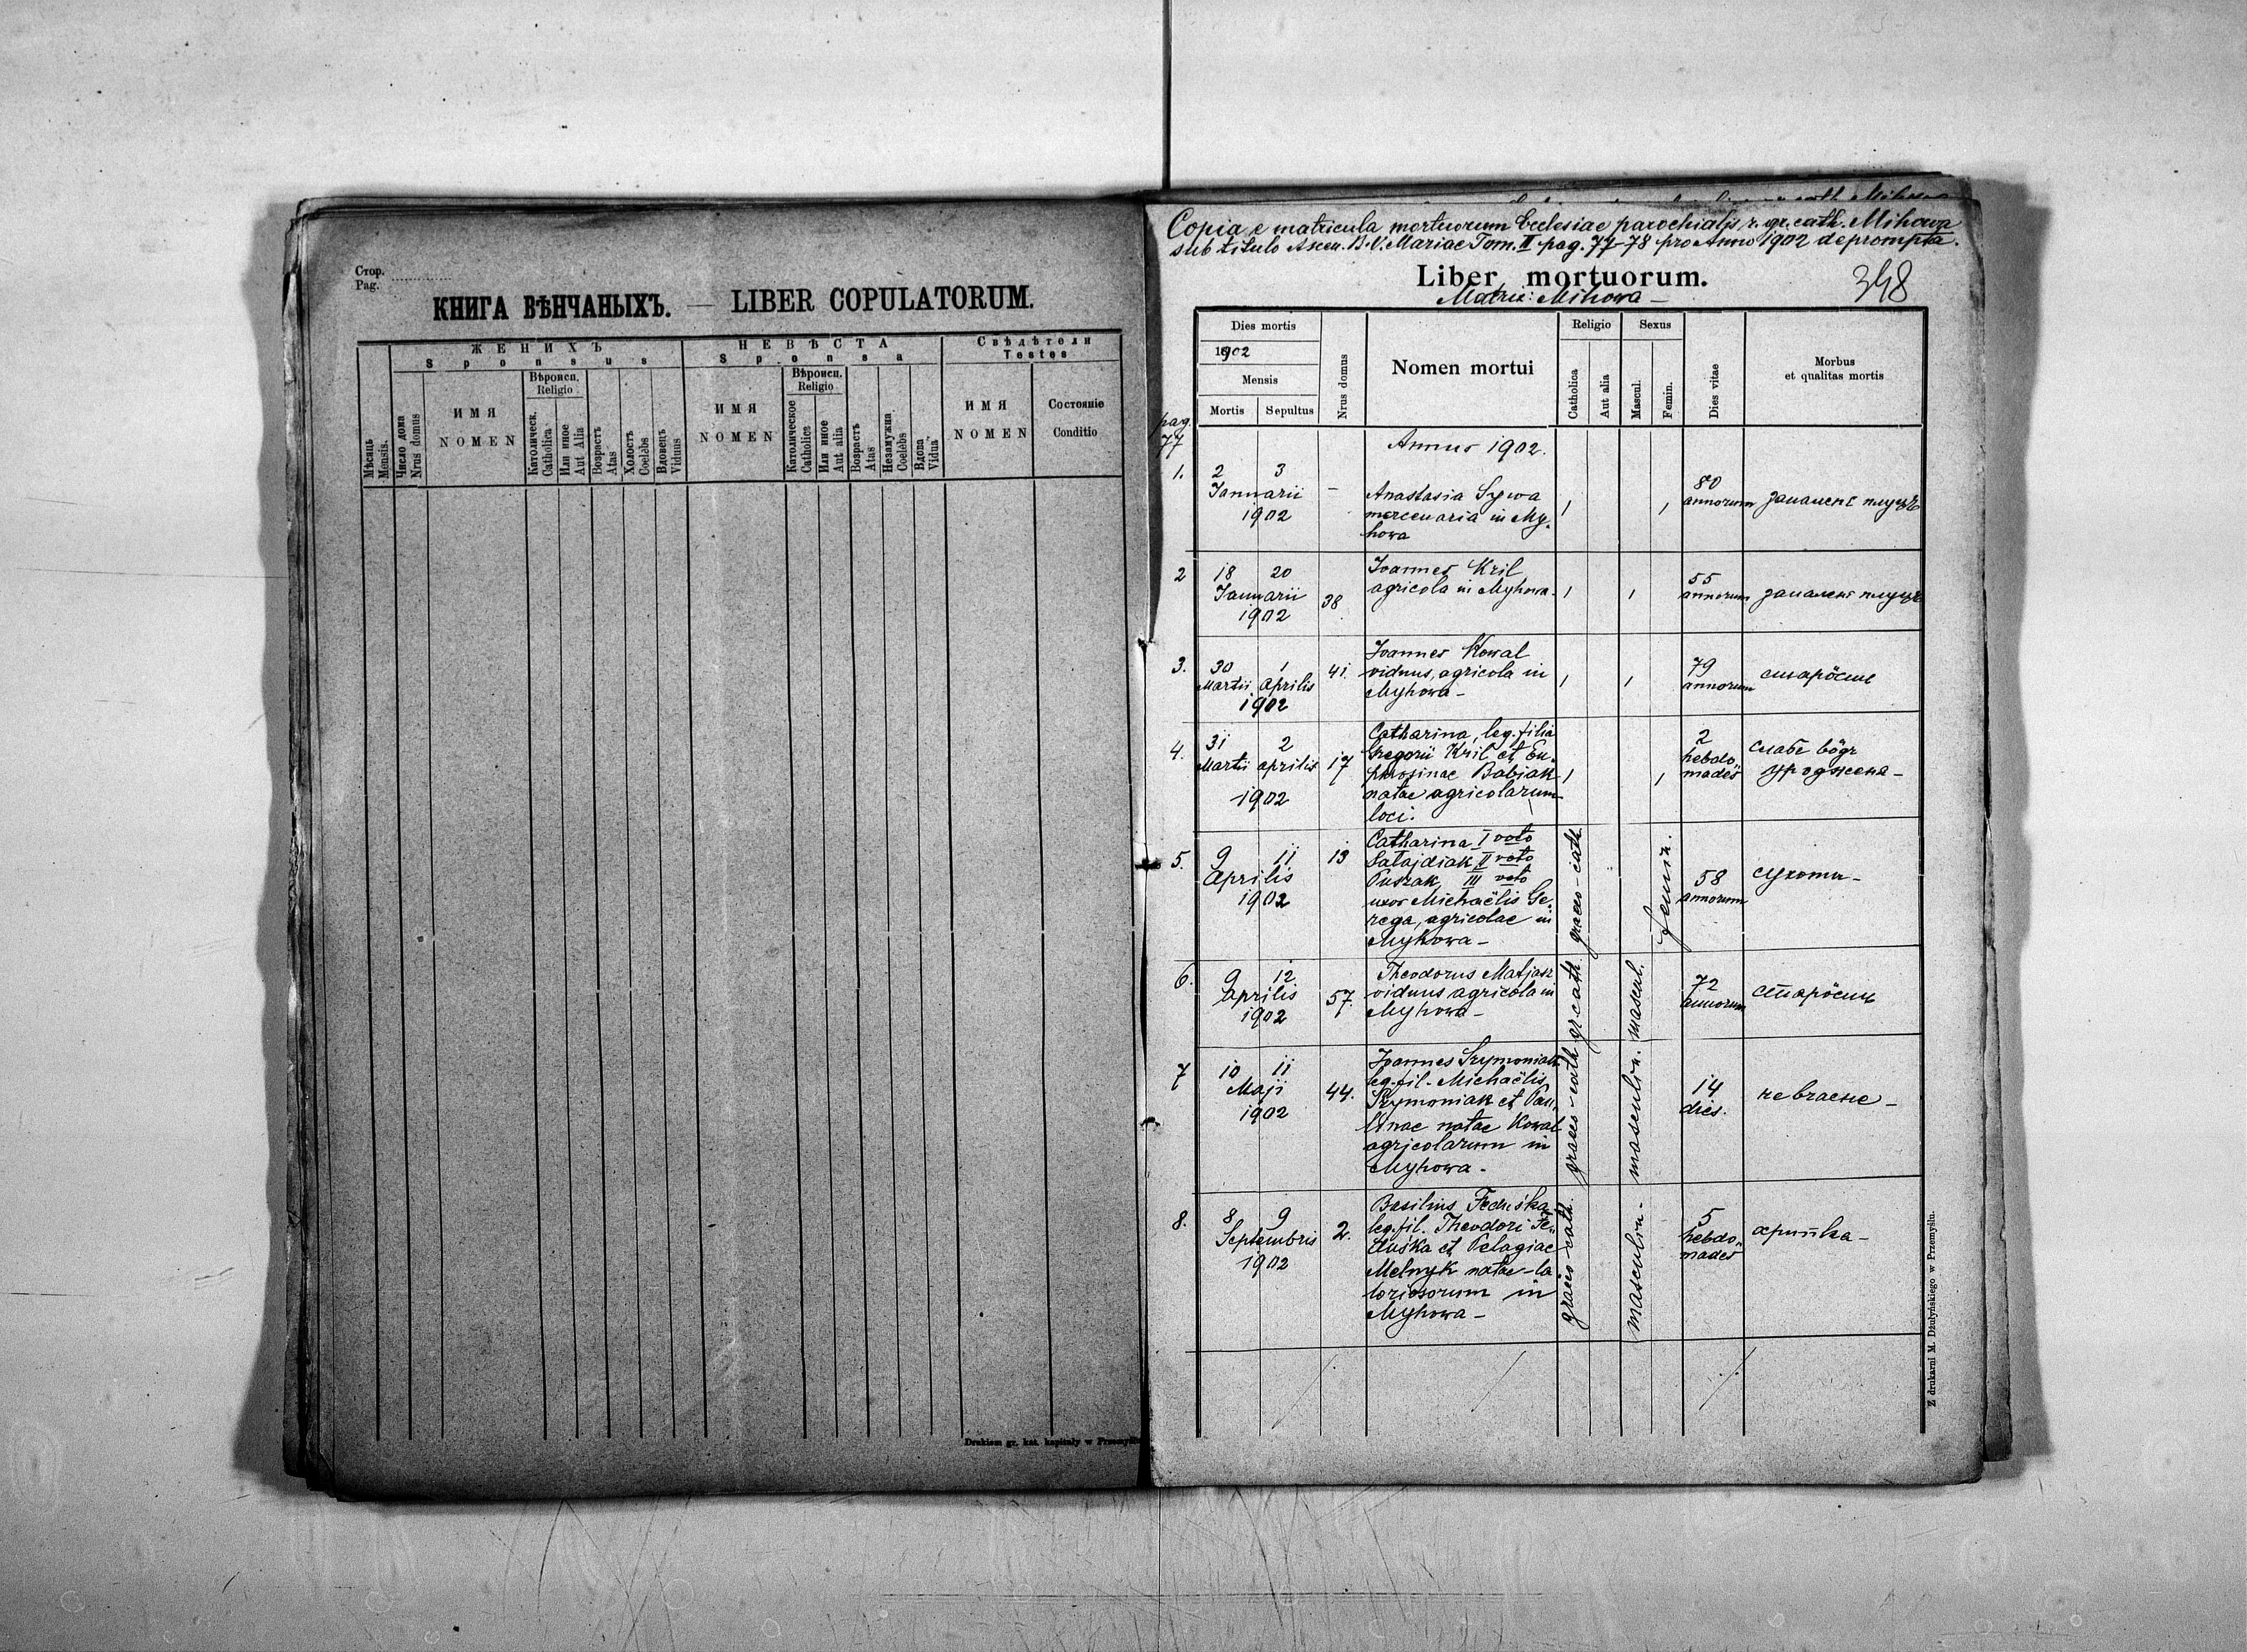 Стор.
Pag.
КНИГА ВѢНЧАНЫХЪ. — LIBER COPULATORUM.
ЖЕНИХЪ
Sponsus
НЕВѢСТА
Sponsa
Свѣдѣтели
Testes
Мѣсяць
Mensis.
Число дома
Nrus domus
ИМЯ
NOMEN
Вѣроисп.
Religio
Католическ.
Catholica
Или иное
Aut Alia
Возрастъ
Atas
Холостъ
Coelebs
Вдовець
Viduus
ИМЯ
NOMEN
Вѣроисп.
Religio
Католическое
Catholica
Или иное
Aut alia
Возрастъ
Atas
Незамужна
Coelebs
Вдова
Vidua
ИМЯ
NOMEN
Состояніе
Conditio
Drukiem gr. kat. kapituły w Przemyślu
Copia e matricula mortuorum Ecclesiae parochialis r. gr. cath. Mihowa
sub titulo Ascen. B.V. Mariae Tom. II pag. 77-78 pro Anno 1902 deprompta.
Liber mortuorum.
348
Matrix: Mihowa —
Dies mortis
1902
Mensis
Mortis
Sepultus
Nrus domus
Nomen mortui
Religio
Catholica
Aut alia
Sexus
Mascul.
Femin.
Dies vitae
Morbus
et qualitas mortis
pag.
77
Annus 1902.
1.
2 3
Januarii
1902
–
Anastasia Sywa
mercenaria in My-
howa
80
annorum
запаленє плуцъ
2
18 20
Januarii
1902
38
Joannes Kril
agricola in Myhowa.
55
annorum
запаленє плуцъ
3.
30 1
Martii Aprilis
1902
41.
Joannes Kowal
viduus, agricola in
Myhowa –
79
annorum
старôсть
4.
31 2
Martii aprilis
1902
17
Catharina, leg. filia
Gregorii Kril et Eu-
phrosinae Babiak
natae agricolarum
loci.
2
hebdo-
mades
слабе вôдъ
уродженя –
5.
9 11
Aprilis
1902
13
Catharina I voto
Satajdiak II voto
Puszak, III voto
uxor Michaëlis Ge-
rega, agricolae in
Myhowa –
graeco-cath.
femin.
58
annorum
сухоты –
6.
9 12
Aprilis
1902
57.
Theodorus Matjasz
viduus agricola in
Myhowa –
gr. cath.
mascul.
72
annorum
старôсть
7
10 11
Maji
1902
44.
Joannes Szymoniak
leg. fil. Michaëlis
Szymoniak et Pau-
linae natae Kowal
agricolarum in
Myhowa.
graeco-cath
masculin.
14
dies.
невчасне –
8.
8 9
Septembris
1902
2.
Basilius Feduśka
leg. fil. Theodori Fe-
duśka et Pelagiae
Melnyk natae – la-
boriosorum in
Myhowa –
graeco cath.
masculin.
5
hebdo-
mades
хрипка –
Z drukarni M. Dżułyńskiego w Przemyślu.